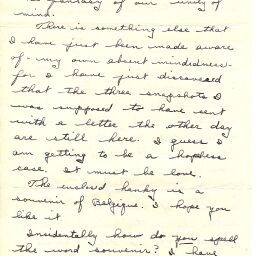 fantasy of our unity of
mind.
There is something else that
I have just been made aware
of - my own absent mindedness -
for I have just discovered
that the three snapshots I
was supposed to have sent
with a letter the other day
are still here. I guess I
am getting to be a hopeless
case. It must be love.
The enclosed hanky is a
souvenir of Belgique. I hope you
like it
Insidentally how do you spell
the word souvenir? I have